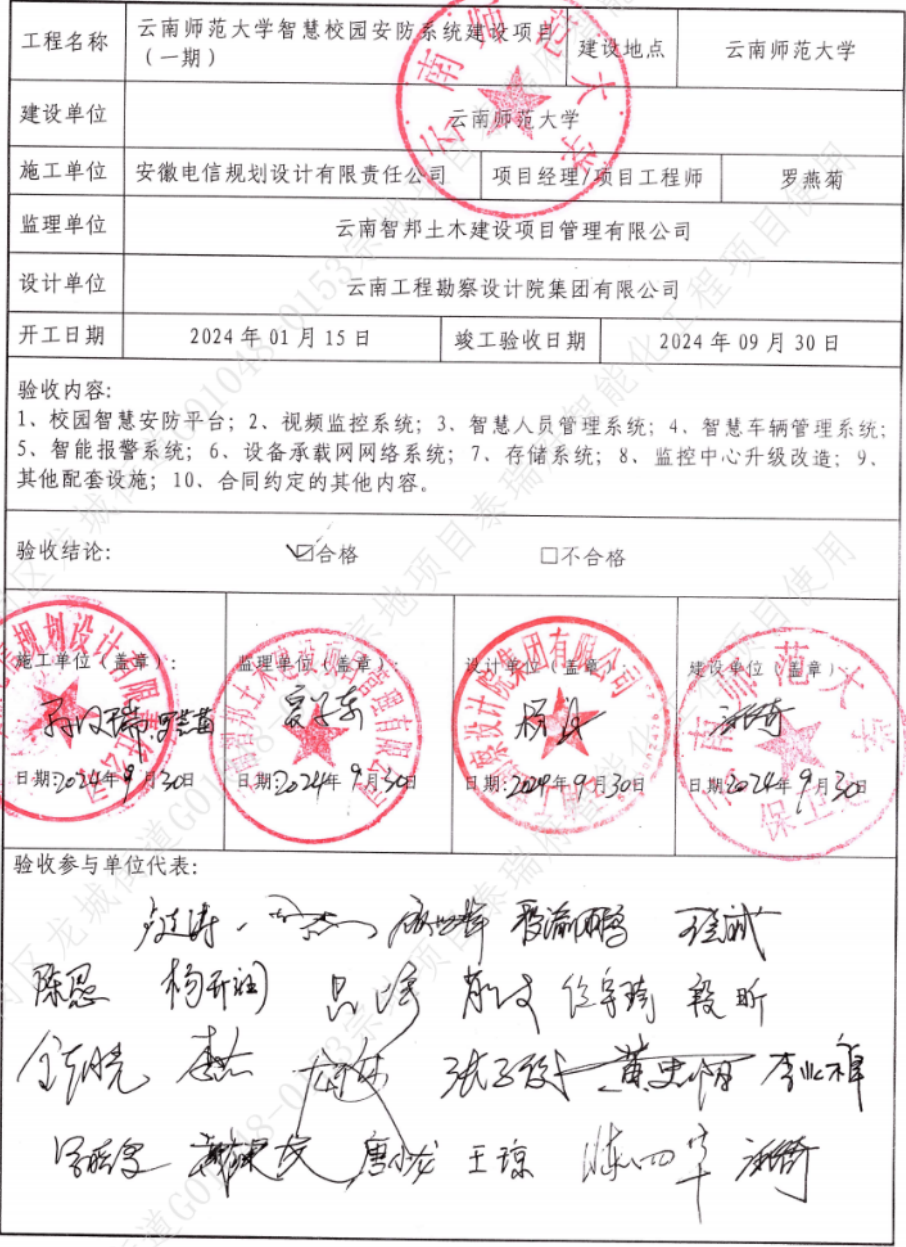 工程名称 云南师范大学智慧校园安防系统建设项目 建设地点 云南师范大学
（一期）
建设单位 云南师范大学
施工单位 安徽电信规划设计有限责任公司 项目经理/项目工程师 罗燕菊
监理单位 云南智邦土木建设项目管理有限公司
设计单位 云南工程勘察设计院集团有限公司
开工日期 2024年01月15日 竣工验收日期 2024年09月30日
验收内容:
1、校园智慧安防平台；2、视频监控系统；3、智慧人员管理系统；4、智慧车辆管理系统；
5、智能报警系统；6、设备承载网网络系统；7、存储系统；8、监控中心升级改造；9、
其他配套设施；10、合同约定的其他内容。
验收结论: ☑合格 □不合格
施工单位（盖章）: 监理单位（盖章）: 设计单位（盖章）: 建设单位（盖章）
日期:2024年9月30日 日期:2024年9月30日 日期:2024年9月30日 日期:2024年9月30日
验收参与单位代表:
陈恩 杨开润 吕 段昕
李杰 张子俊 黄忠阳 李业祥
唐小龙 王琼 陈四华